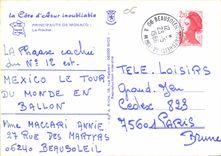 La Côte d'Azur inoubliable
PRINCIPAUTÉ DE MONACO
Le Rocher
06
LA PHRASE CACHÉE
DU N° 2 12 EST.
MEXICO LE TOUR
DU MONDE EN
BALLON
Mme MACCARI ANNIE
27 RUE DES MARTYRS
06240 BEAUSOLEIL
06 BEAUSOLEIL
TELE. LOISIRS
Grand Jeu
Cedex 828
75601 PARIS
Brune